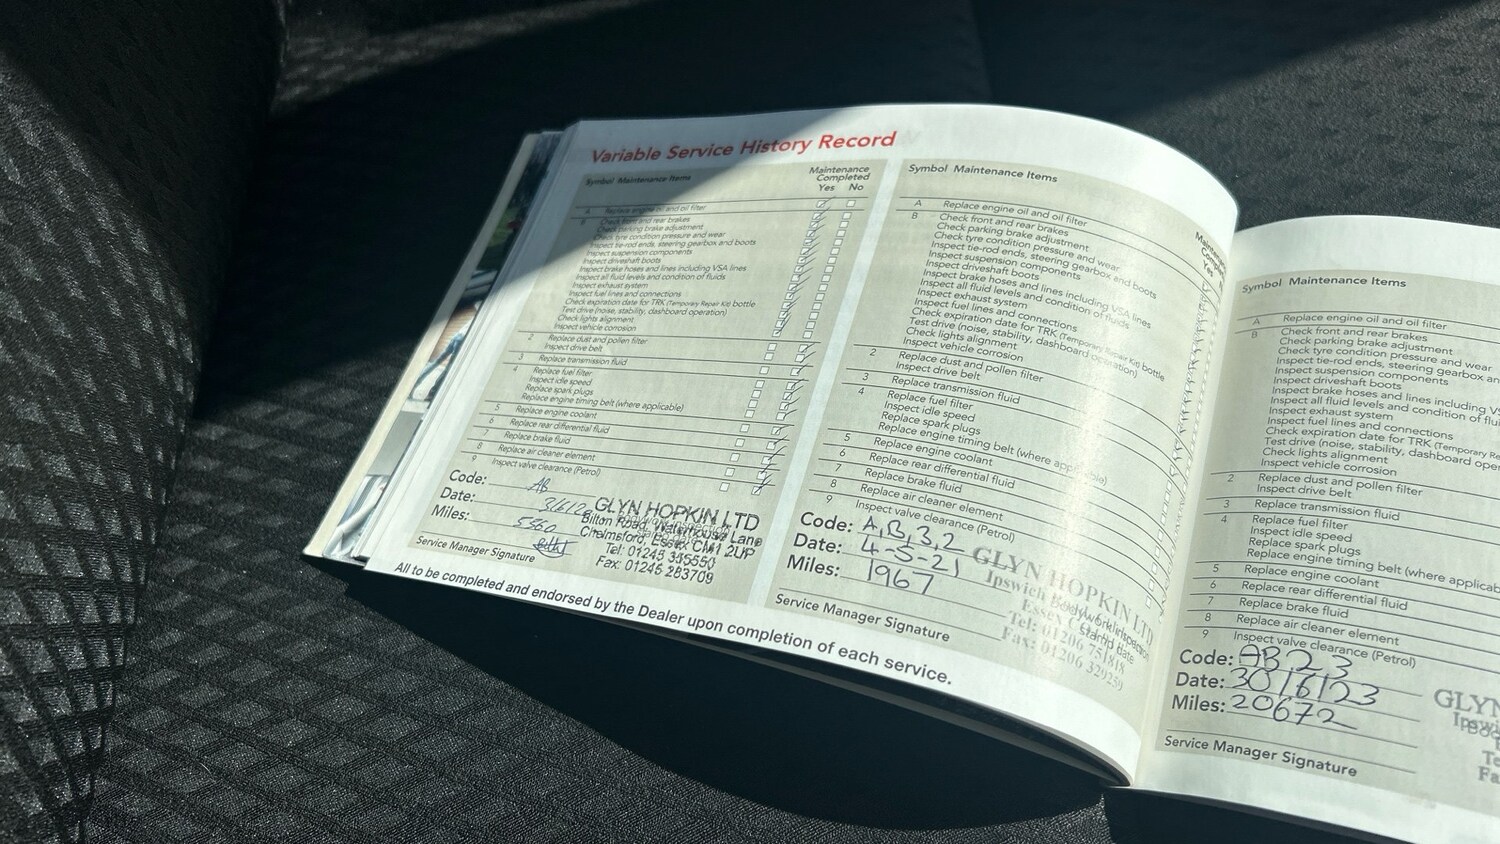 Variable Service History Record
Symbol Maintenance Items
Maintenance
Completed
Yes No
A Replace engine oil and oil filter
B Check front and rear brakes
Check parking brake adjustment
Check tyre condition pressure and wear
Inspect tie-rod ends, steering gearbox and boots
Inspect suspension components
Inspect driveshaft boots
Inspect brake hoses and lines including VSA lines
Inspect all fluid levels and condition of fluids
Inspect exhaust system
Inspect fuel lines and connections
Check expiration date for TRK (Temporary Repair Kit) bottle
Test drive (noise, stability, dashboard operation)
Check lights alignment
Inspect vehicle corrosion
2 Replace dust and pollen filter
Inspect drive belt
3 Replace transmission fluid
4 Replace fuel filter
Inspect idle speed
Replace spark plugs
Replace engine timing belt (where applicable)
5 Replace engine coolant
6 Replace rear differential fluid
7 Replace brake fluid
8 Replace air cleaner element
9 Inspect valve clearance (Petrol)
Code: AB
Date:
Miles: 5560
Service Manager Signature
GLYN HOPKIN LTD
Bilton Road, Waterhouse Lane
Chelmsford, Essex CM1 2UP
Tel: 01245 345550
Fax: 01245 283709
All to be completed and endorsed by the Dealer upon completion of each service.
Symbol Maintenance Items
Yes
A Replace engine oil and oil filter
B Check front and rear brakes
Check parking brake adjustment
Check tyre condition pressure and wear
Inspect tie-rod ends, steering gearbox and boots
Inspect suspension components
Inspect driveshaft boots
Inspect brake hoses and lines including VSA lines
Inspect all fluid levels and condition of fluids
Inspect exhaust system
Inspect fuel lines and connections
Check expiration date for TRK (Temporary Repair Kit) bottle
Test drive (noise, stability, dashboard operation)
Check lights alignment
Inspect vehicle corrosion
2 Replace dust and pollen filter
Inspect drive belt
3 Replace transmission fluid
4 Replace fuel filter
Inspect idle speed
Replace spark plugs
Replace engine timing belt (where applicable)
5 Replace engine coolant
6 Replace rear differential fluid
7 Replace brake fluid
8 Replace air cleaner element
9 Inspect valve clearance (Petrol)
Code: A,B,3,2
Date: 4-5-21
Miles: 1967
Service Manager Signature
GLYN HOPKIN LTD
Ipswich
Essex
Tel: 01206 751818
Fax: 01206 329259
Symbol Maintenance Items
A Replace engine oil and oil filter
B Check front and rear brakes
Check parking brake adjustment
Check tyre condition pressure and wear
Inspect tie-rod ends, steering gearbox an
Inspect suspension components
Inspect driveshaft boots
Inspect brake hoses and lines including VS
Inspect all fluid levels and condition of flu
Inspect exhaust system
Inspect fuel lines and connections
Check expiration date for TRK (Temporary Re
Test drive (noise, stability, dashboard ope
Check lights alignment
Inspect vehicle corrosion
2 Replace dust and pollen filter
Inspect drive belt
3 Replace transmission fluid
4 Replace fuel filter
Inspect idle speed
Replace spark plugs
Replace engine timing belt (where applicab
5 Replace engine coolant
6 Replace rear differential fluid
7 Replace brake fluid
8 Replace air cleaner element
9 Inspect valve clearance (Petrol)
Code: AB23
Date: 30/6/23
Miles: 20672
Service Manager Signature
GLYN